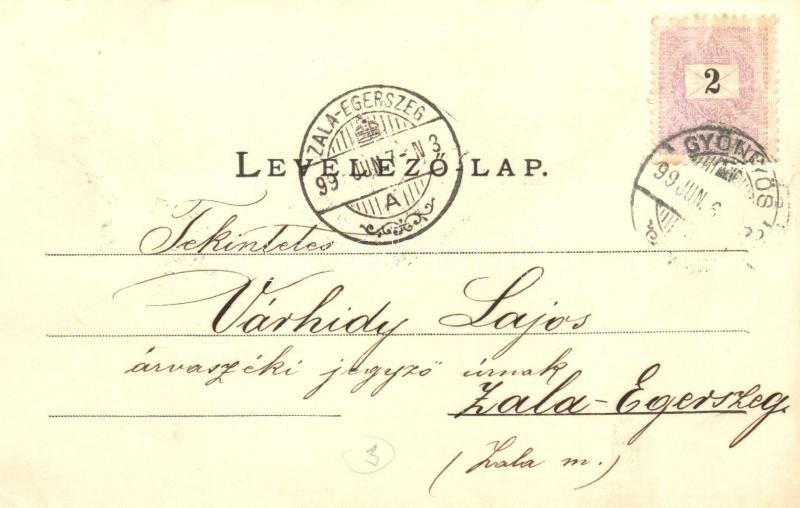 2
ZALA-EGERSZEG
99 JUN. 7 - N 3
A
GYÖNGYÖS
99 JUN. 6
LEVELEZŐ-LAP.
Tekintetes
Várhidy Lajos
árvaszéki jegyző úrnak
Zala-Egerszeg.
(Zala m.)
3